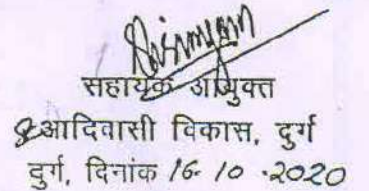 सहायक आयुक्त
आदिवासी विकास, दुर्ग
दुर्ग, दिनांक 16.10.2020